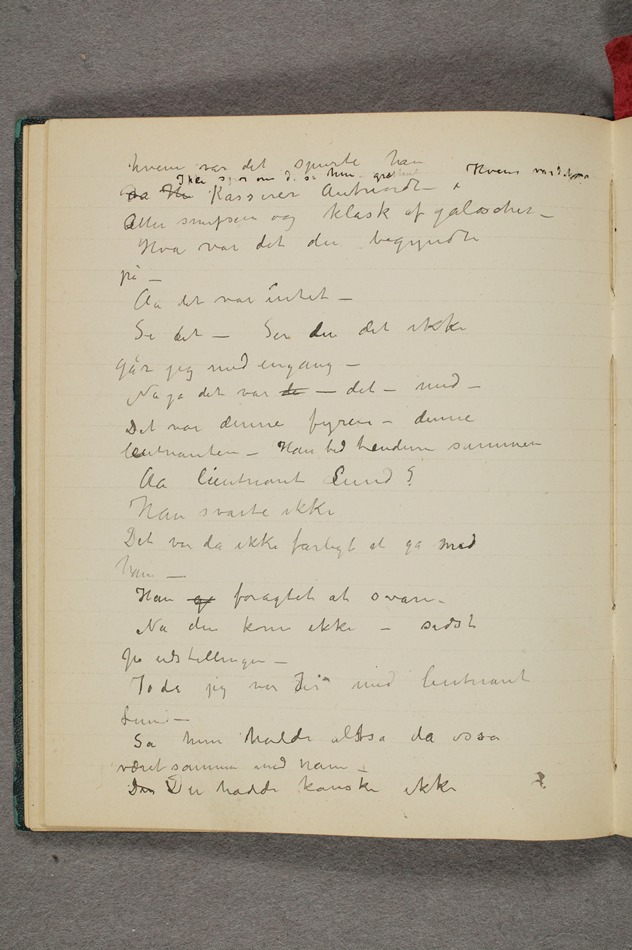 hvem var det spurte han
Ikke spør om d. sa hun
Kasserer Hvem var det
Atter snufsen og klask af galoscher –
Hva var det du begyndte
på –
Aa det var intet –
Se det – Ser du det ikke
går jeg med engang –
Na ja det var de – det – med –
Det var denne fyren – denne
leutnanten – Han bed tændern sammen
Aa lieutnant Lund?
Han svarte ikke
Det var da ikke farligt at ga med
ham –
Han foragtet at svare.
Na du kom ikke – sidst
på udstellingen –
Jo da jeg var der med lieutnant
Lund –
Sa hun hadde altsa da ossa
været sammen med ham –
Du hadde kanske ikke